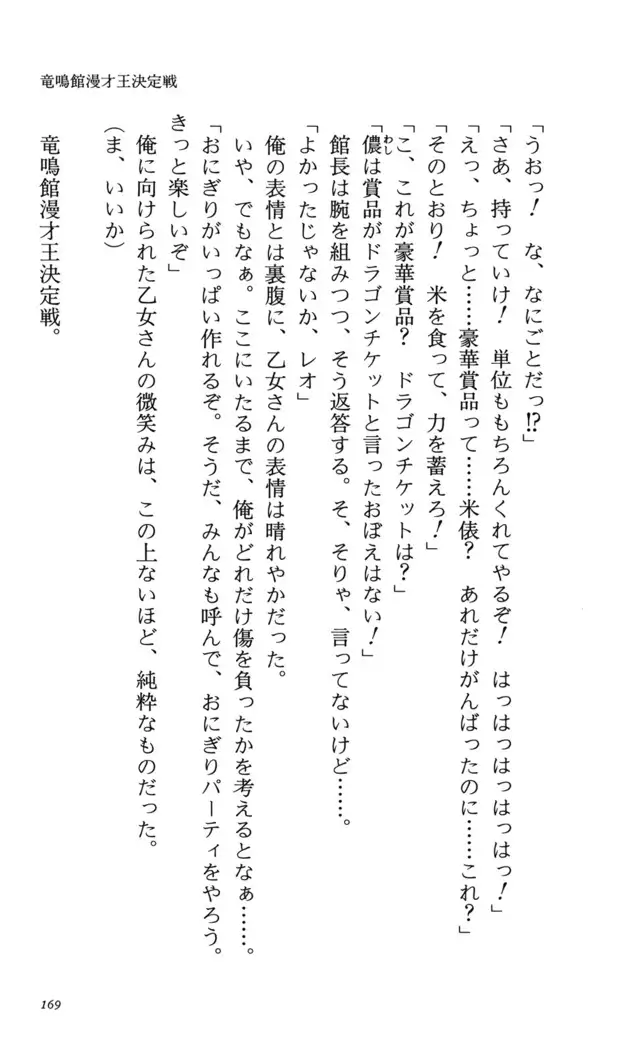 竜鳴館漫才王決定戦
「うおっ！　な、なにごとだっ!?」
「さあ、持っていけ！　単位ももちろんくれてやるぞ！　はっはっはっはっはっ！」
「えっ、ちょっと……豪華賞品って……米俵？　あれだけがんばったのに……これ？」
「そのとおり！　米を食って、力を蓄えろ！」
「こ、これが豪華賞品？　ドラゴンチケットは？」
「儂は賞品がドラゴンチケットと言ったおぼえはない！」
わし
館長は腕を組みつつ、そう返答する。そ、そりゃ、言ってないけど……。
「よかったじゃないか、レオ」
俺の表情とは裏腹に、乙女さんの表情は晴れやかだった。
いや、でもなぁ。ここにいたるまで、俺がどれだけ傷を負ったかを考えるとなぁ……。
「おにぎりがいっぱい作れるぞ。そうだ、みんなも呼んで、おにぎりパーティをやろう。
きっと楽しいぞ」
俺に向けられた乙女さんの微笑みは、この上ないほど、純粋なものだった。
（ま、いいか）
竜鳴館漫才王決定戦。
169